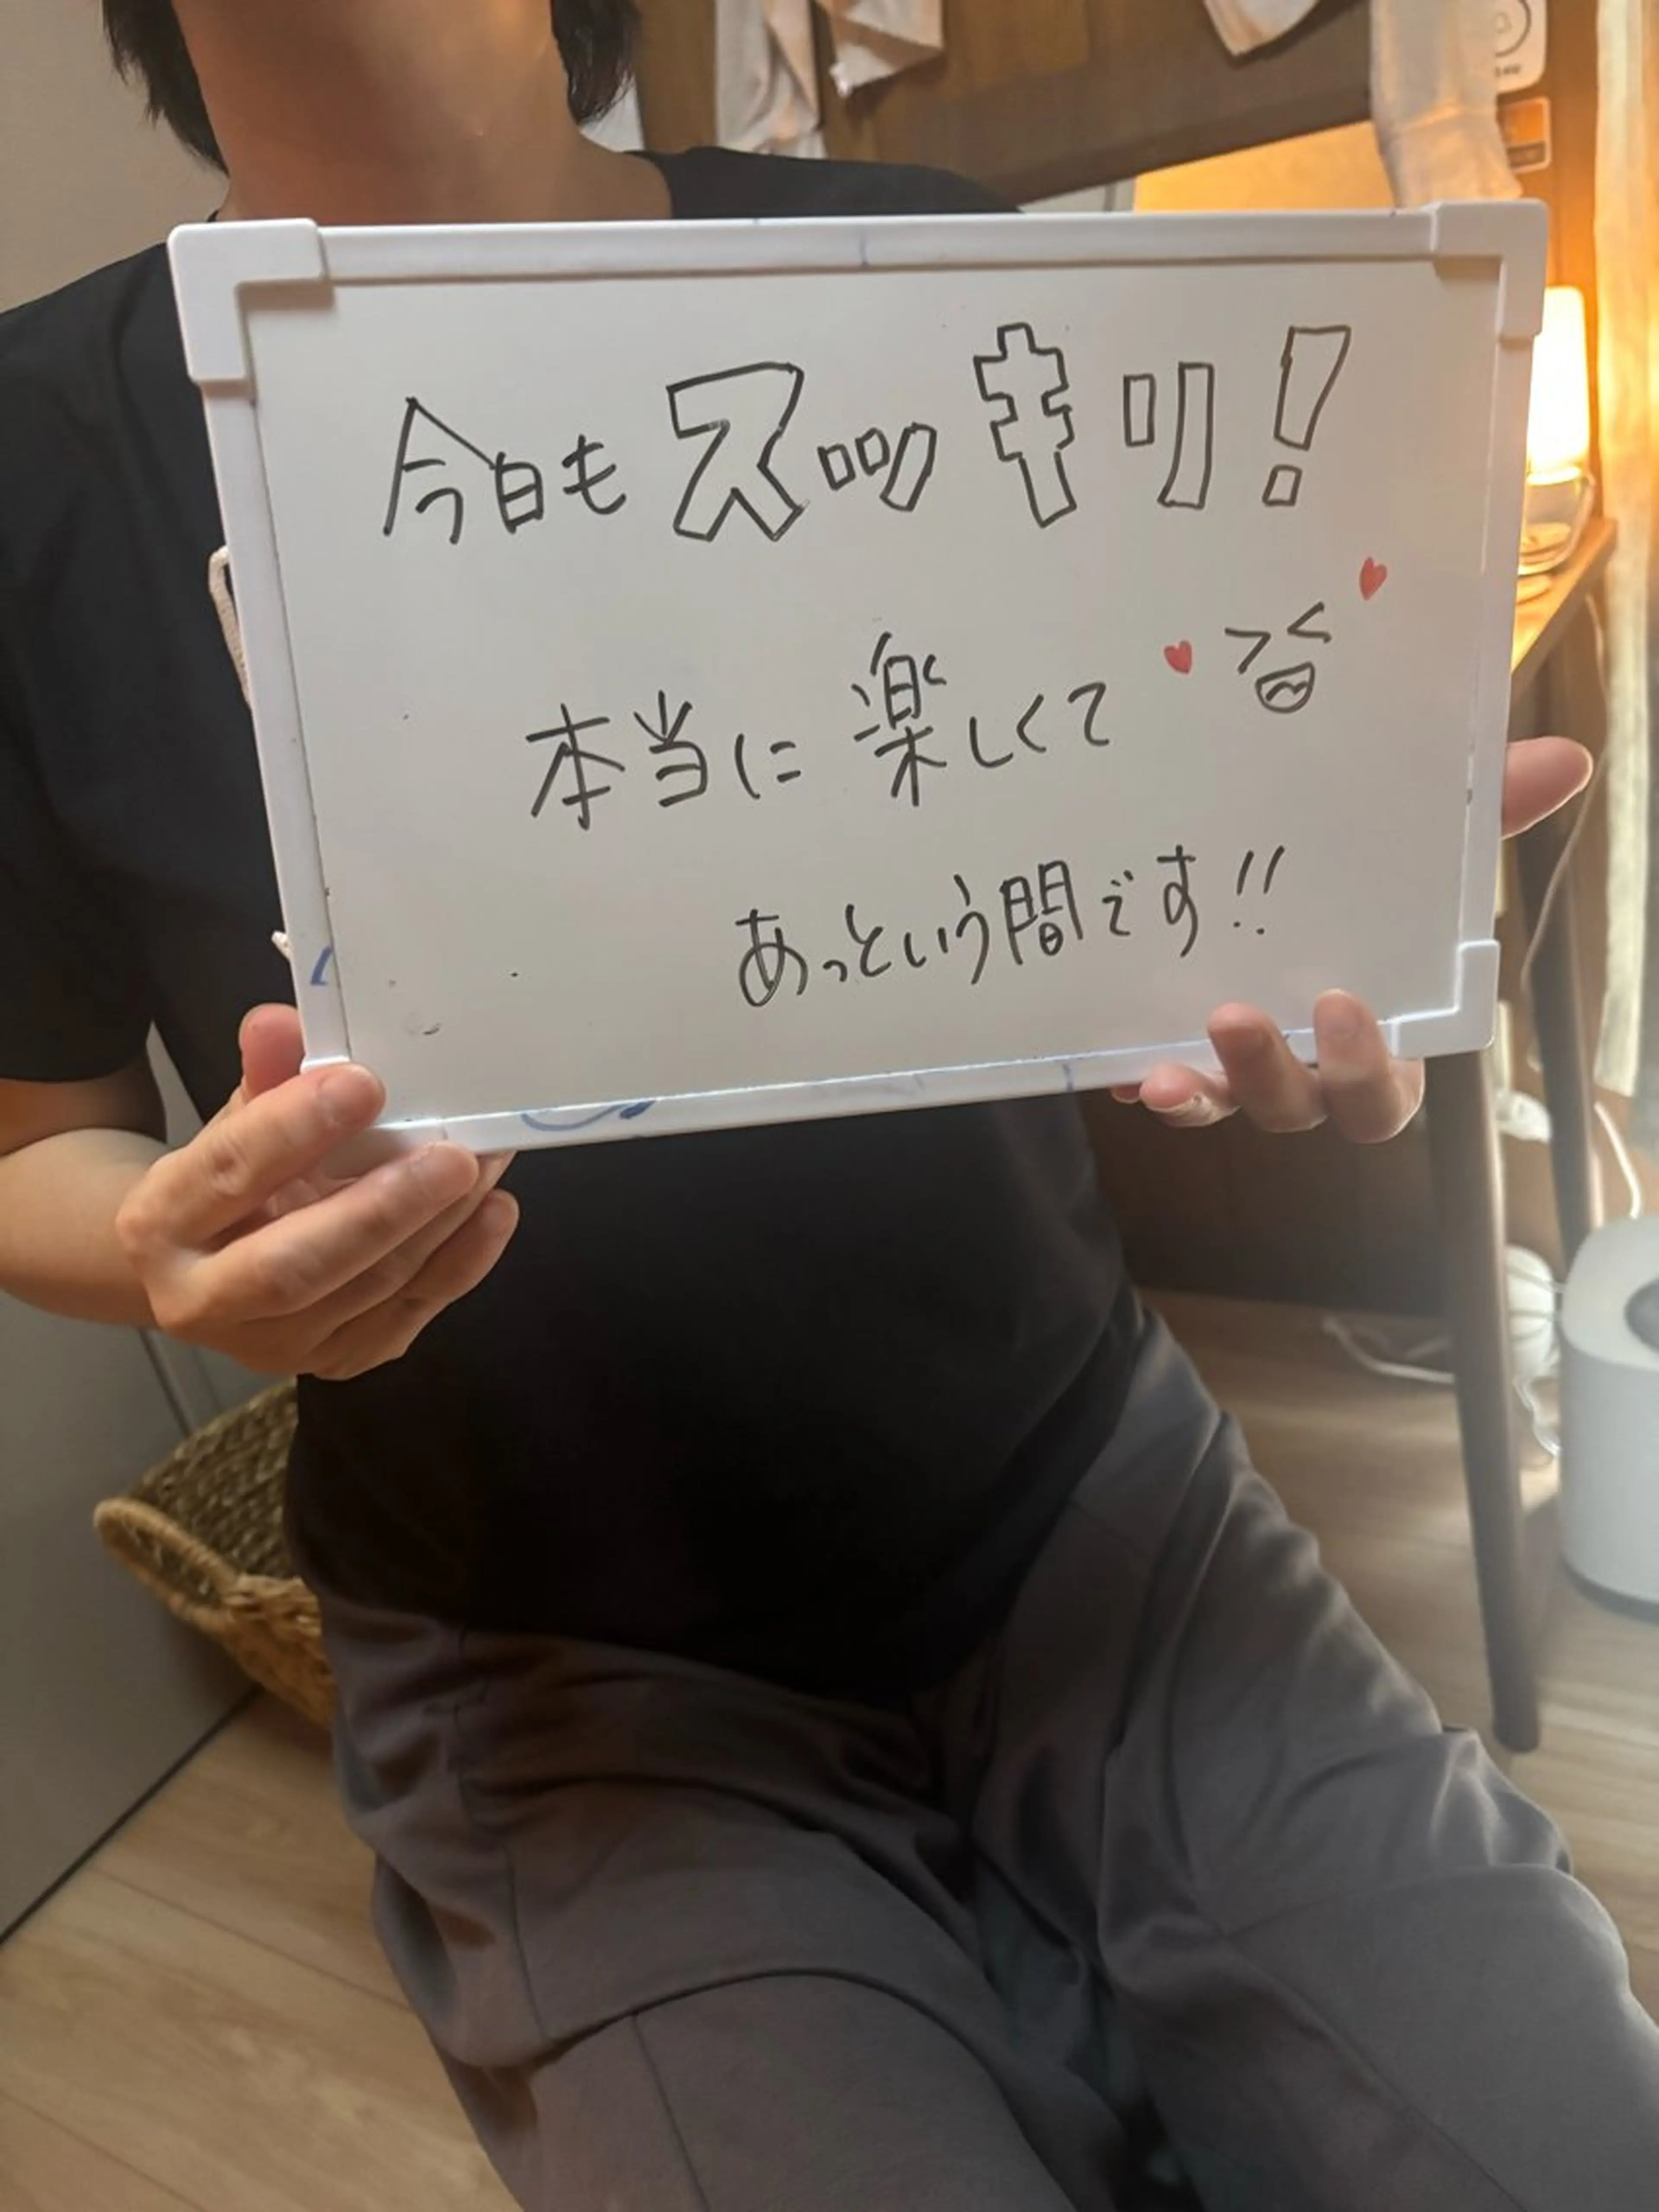 今日もスッキリ!
本当に楽しくて
あっという間です!!